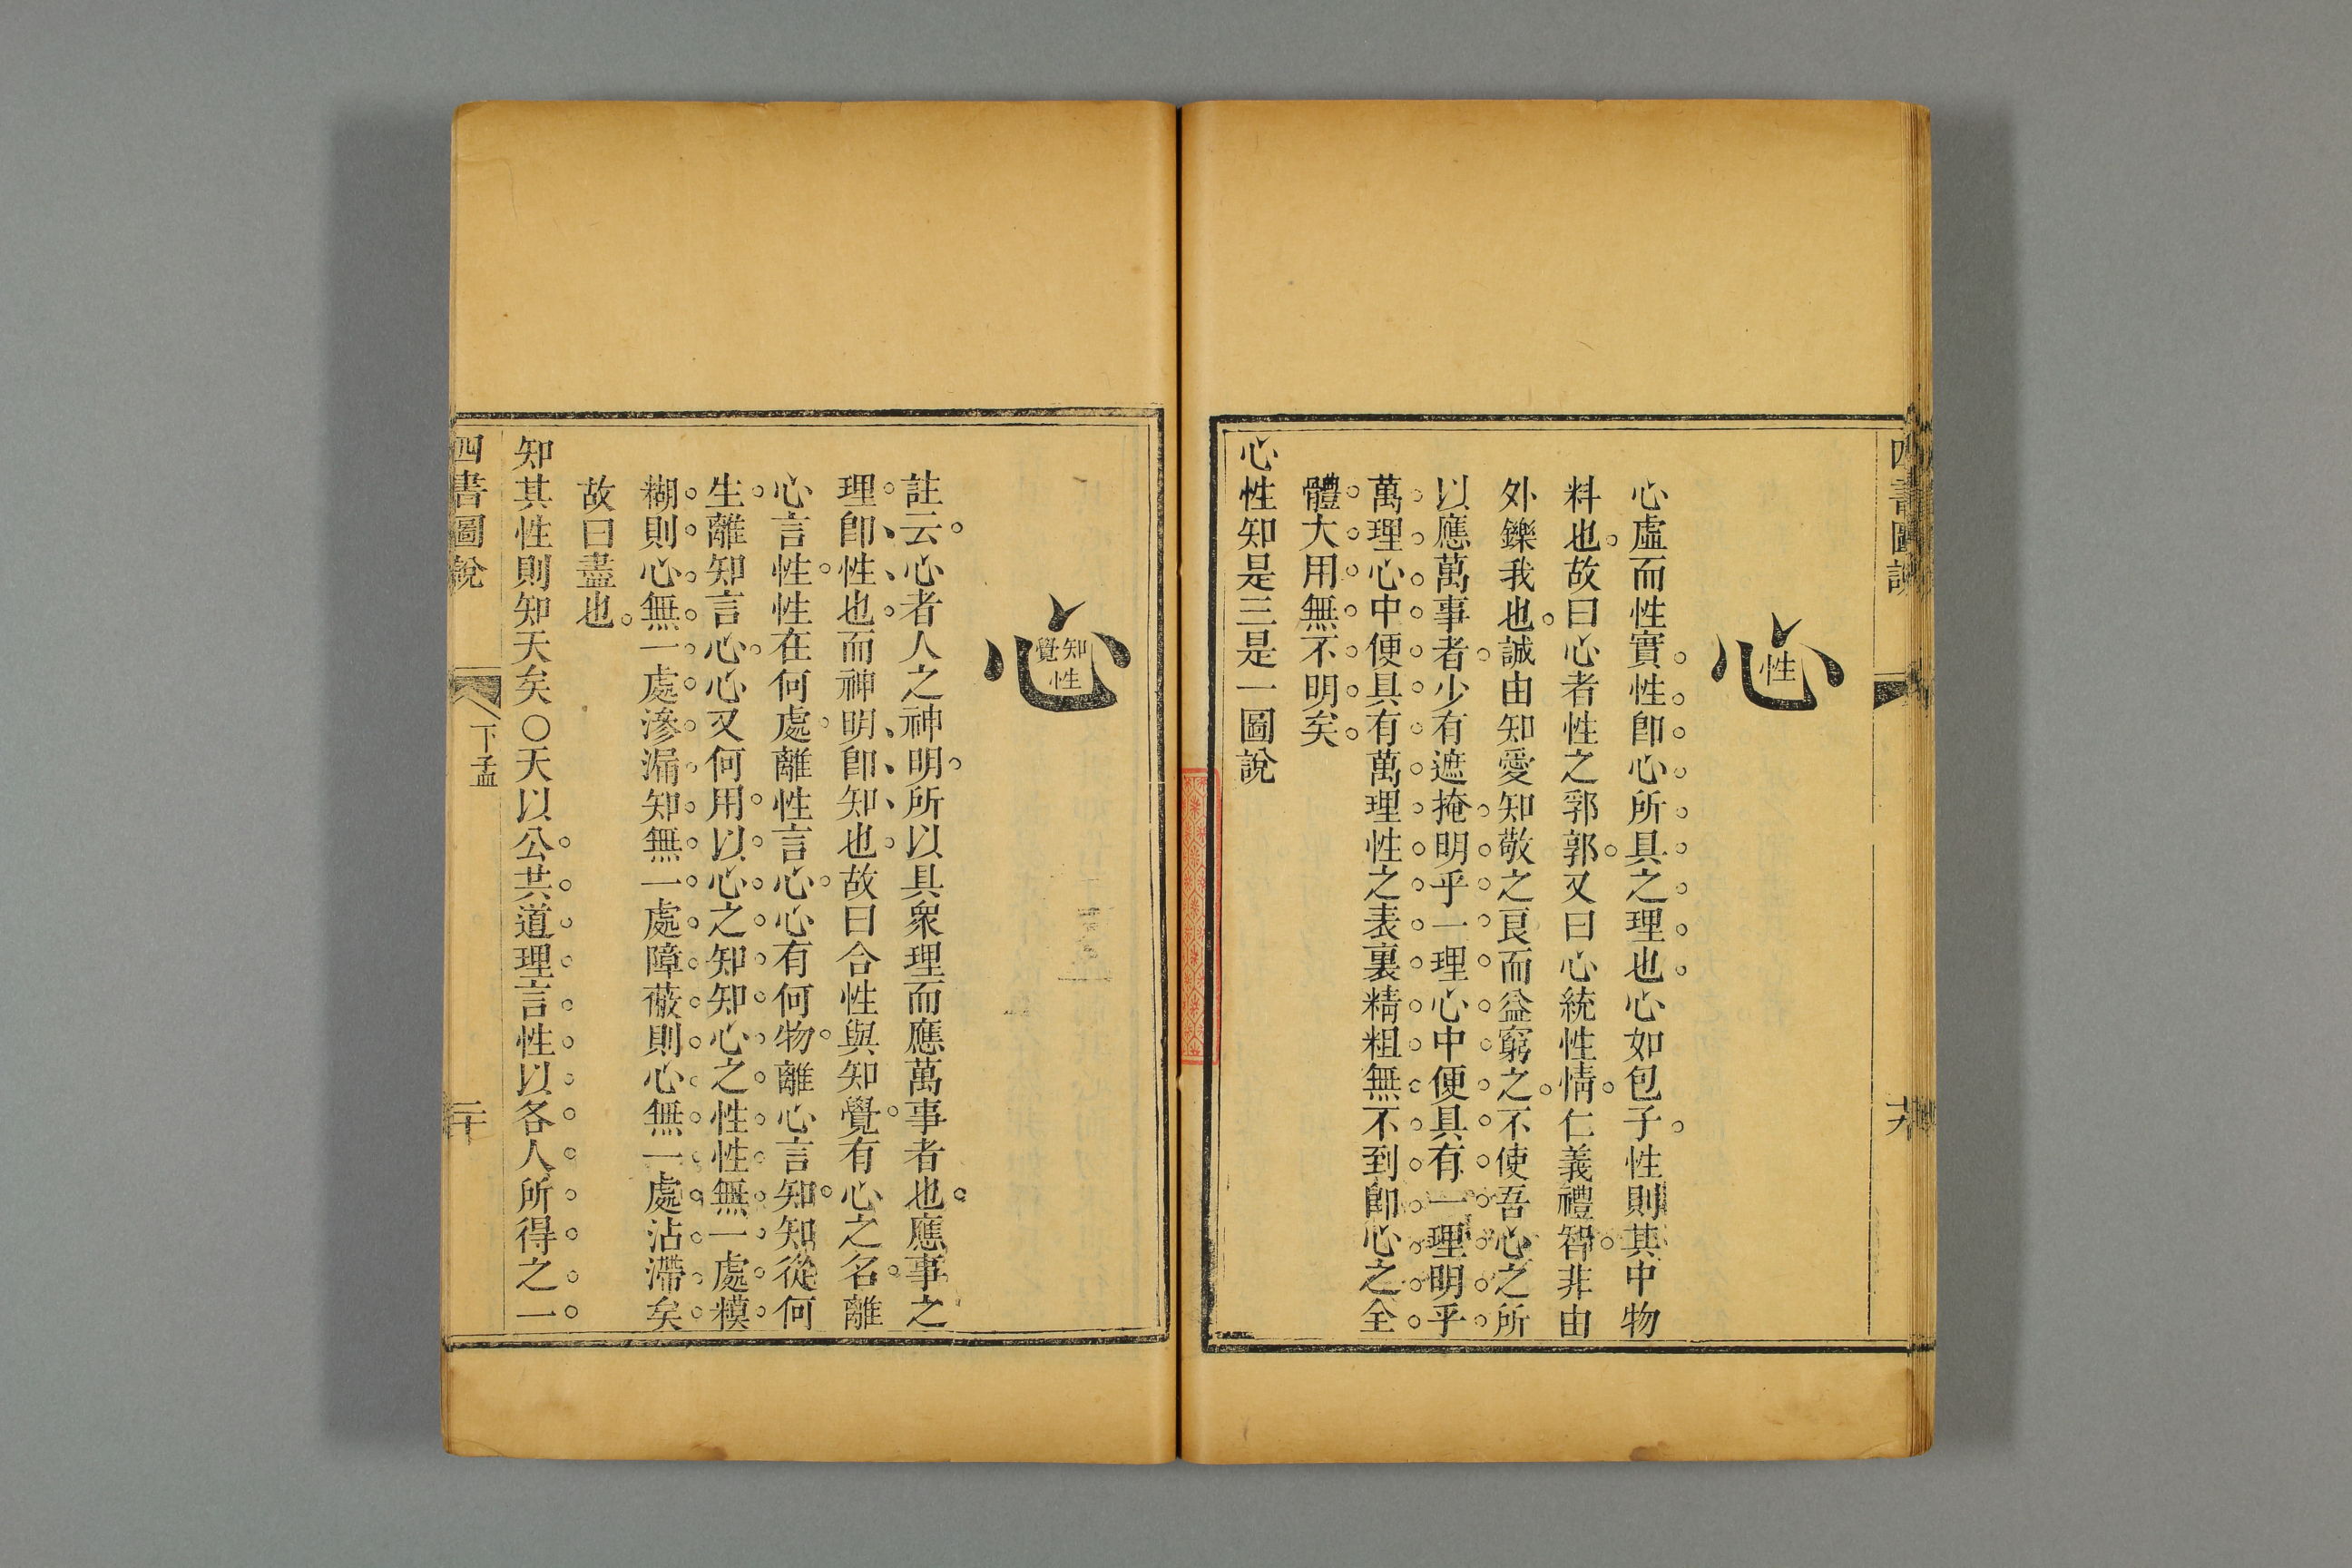 四書圖說
十九
心
性
心虛而性實性卽心所具之理也心如包子性則其中物
料也故曰心者性之郛郭又曰心統性情仁義禮智非由
外鑠我也誠由知愛知敬之良而益窮之不使吾心之所
以應萬事者少有遮掩明乎一理心中便具有一理明乎
萬理心中便具有萬理性之表裏精粗無不到卽心之全
體大用無不明矣
心性知是三是一圖說
心
知覺
性
註云心者人之神明所以具衆理而應萬事者也應事之
理卽性也而神明卽知也故曰合性與知覺有心之名離
心言性性在何處離性言心心有何物離心言知知從何
生離知言心心又何用以心之知知心之性性無一處糢
糊則心無一處滲漏知無一處障蔽則心無一處沾滯矣
故曰盡也
知其性則知天矣○天以公共道理言性以各人所得之一
四書圖說
下孟
二十